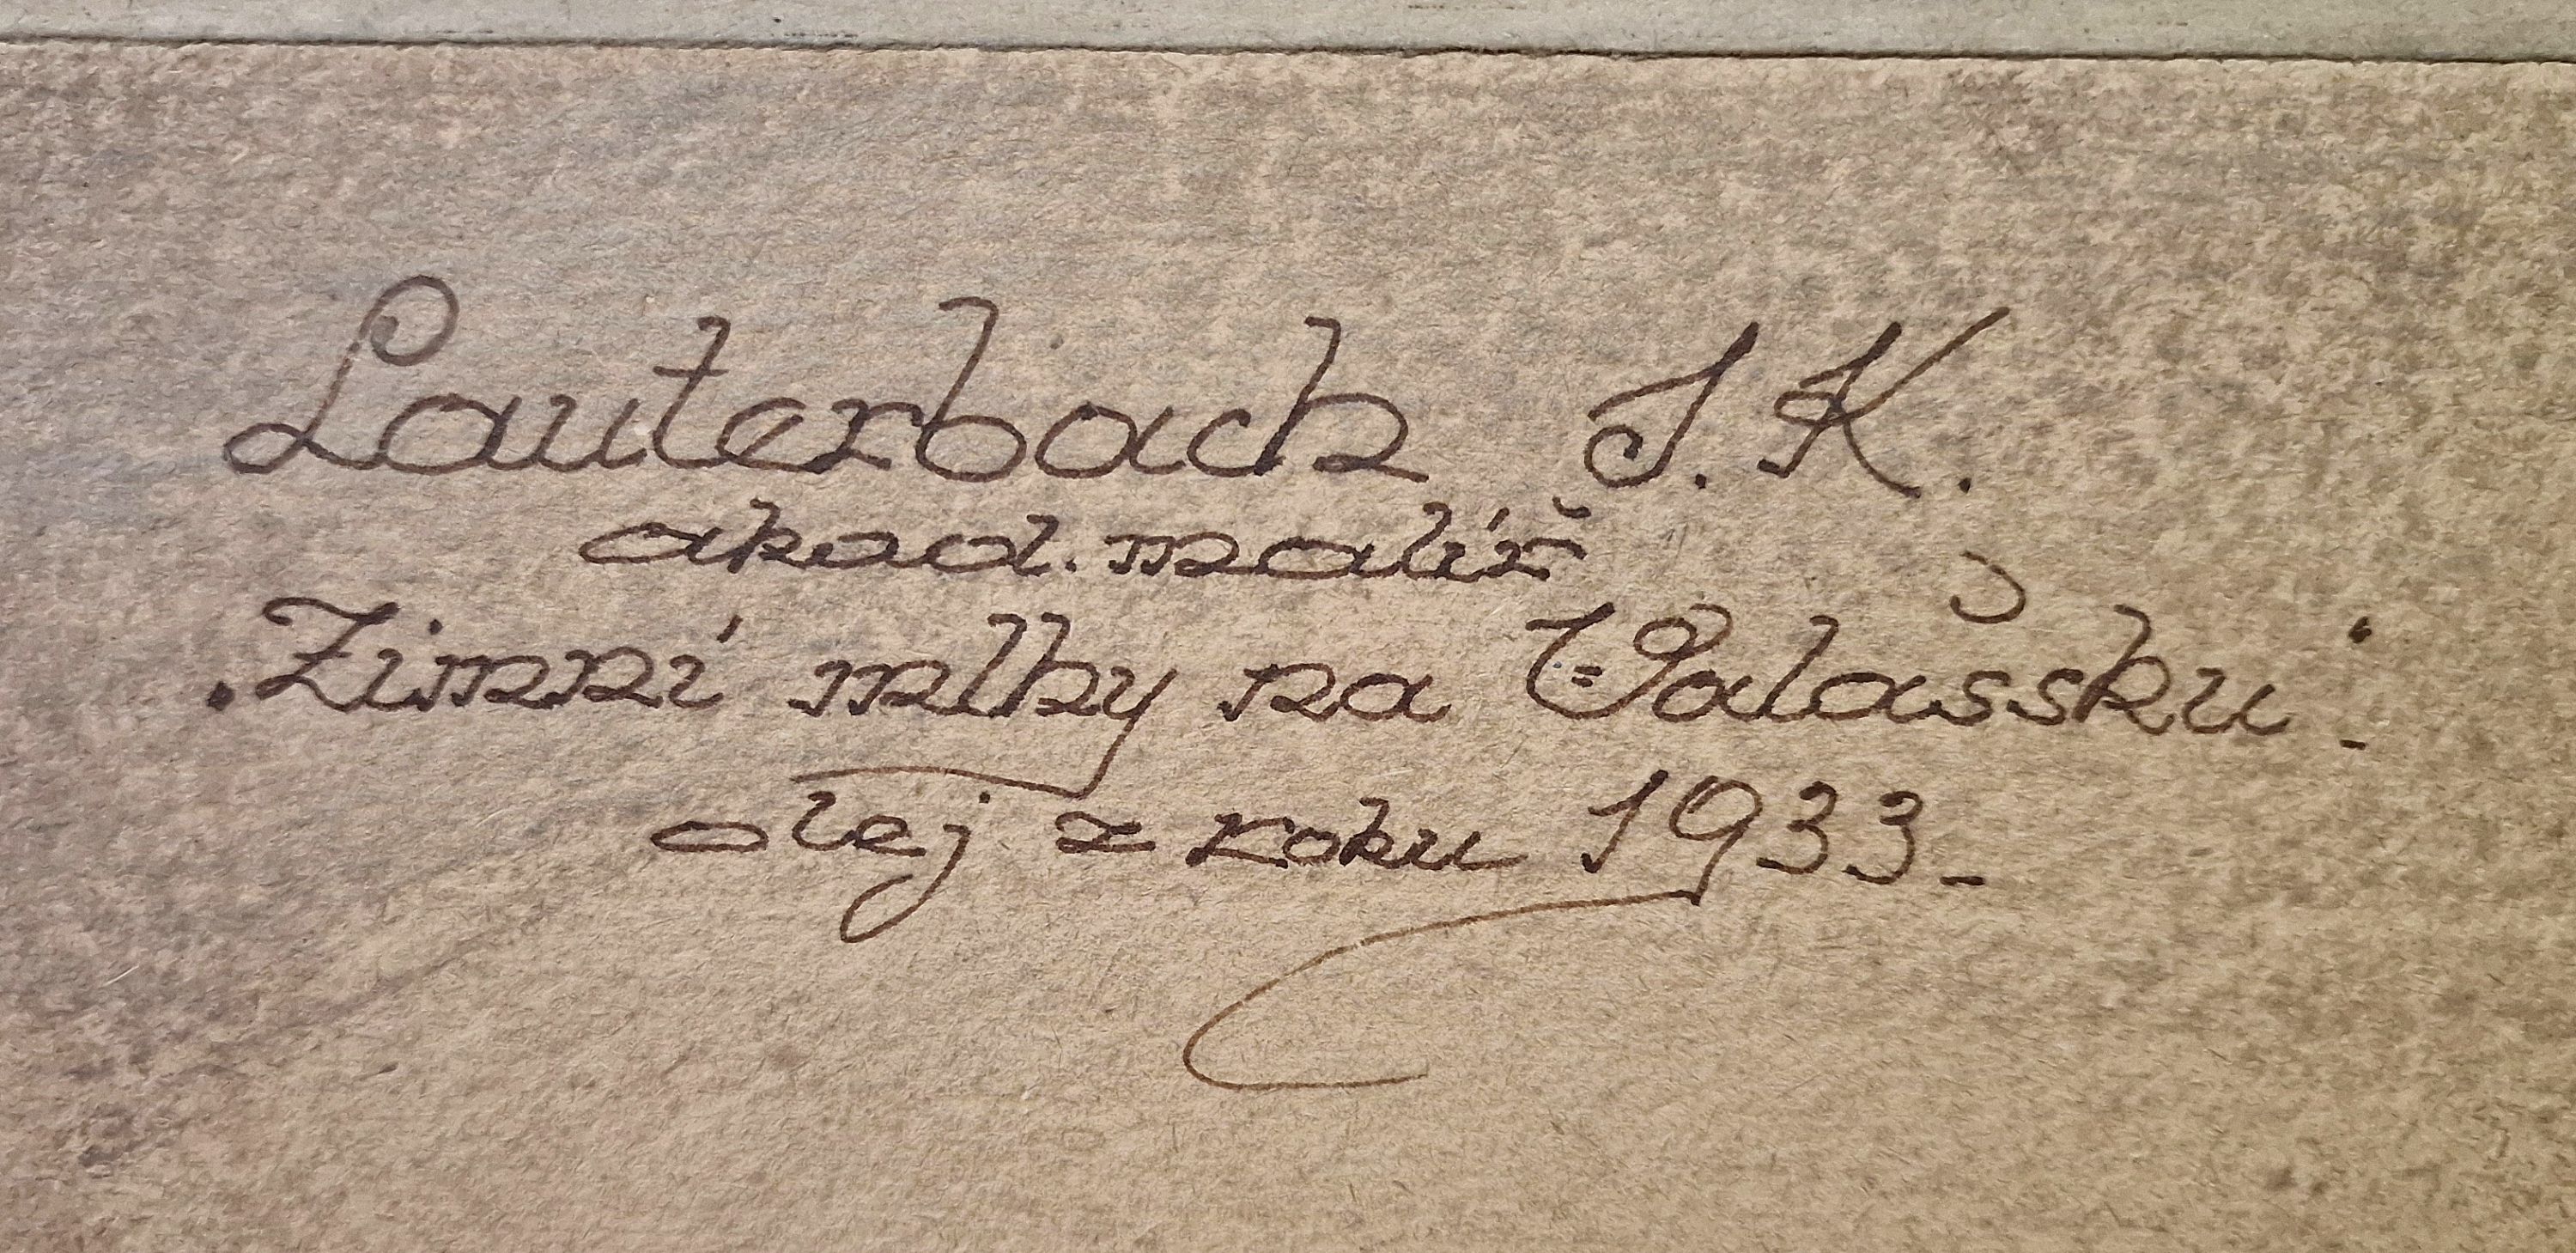 Lauterbach J.K.
akad. malíř
„Zimní mlhy na Valašsku“.
olej z roku 1933.